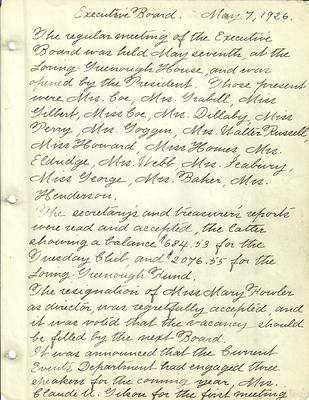 Executive Board. May 7, 1926.
The regular meeting of the Executive
Board was held May seventh, at the
Loring-Greenough House, and was
opened by the President. Those present
were Mrs. Coe, Mrs. Grabill, Miss
Gilbert, Miss Coe, Mrs. Dillaby, Miss
Perry, Mrs. Goggin, Mrs. Walter Russell,
Miss Howard, Miss Homes Mrs.
Eldridge, Mrs. Webb Mrs. Seabury,
Miss George, Mrs. Baker, Mrs.
Henderson,
The secretary's and treasurer's reports
were read and accepted, the latter
showing a balance $684.53 for the
Tuesday Club and $2076.55 for the
Loring-Greenough Fund.
The resignation of Miss Mary Fowler
as director, was regretfully accepted and
it was voted that the vacancy should
be filled by the next Board.
It was announced that the Current
Events Department had engaged three
speakers for the coming year, Mrs.
Claude U. Gilson for the first meeting